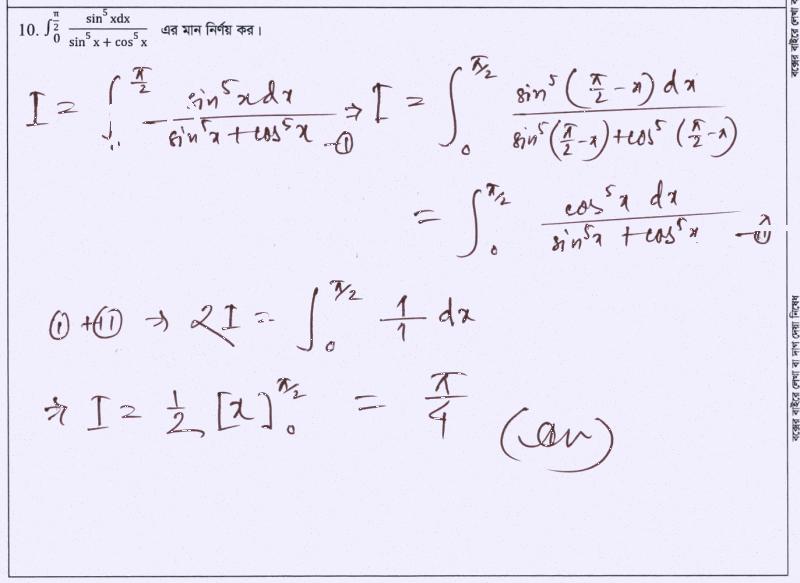 10. ∫₀^(π/2) sin⁵xdx / (sin⁵x + cos⁵x) এর মান নির্ণয় কর।
I = ∫^(π/2) sin⁵x dx / (sin⁵x + cos⁵x) —(i) ⇒ I = ∫₀^(π/2) sin⁵(π/2 − x) dx / (sin⁵(π/2 − x) + cos⁵(π/2 − x))
= ∫₀^(π/2) cos⁵x dx / (sin⁵x + cos⁵x) —(ii)
(i) + (ii) → 2I = ∫₀^(π/2) 1/1 dx
⇒ I = 1/2 [x]₀^(π/2) = π/4 (an)
বক্সের বাইরে লেখা বা দাগ দেয়া নিষেধ